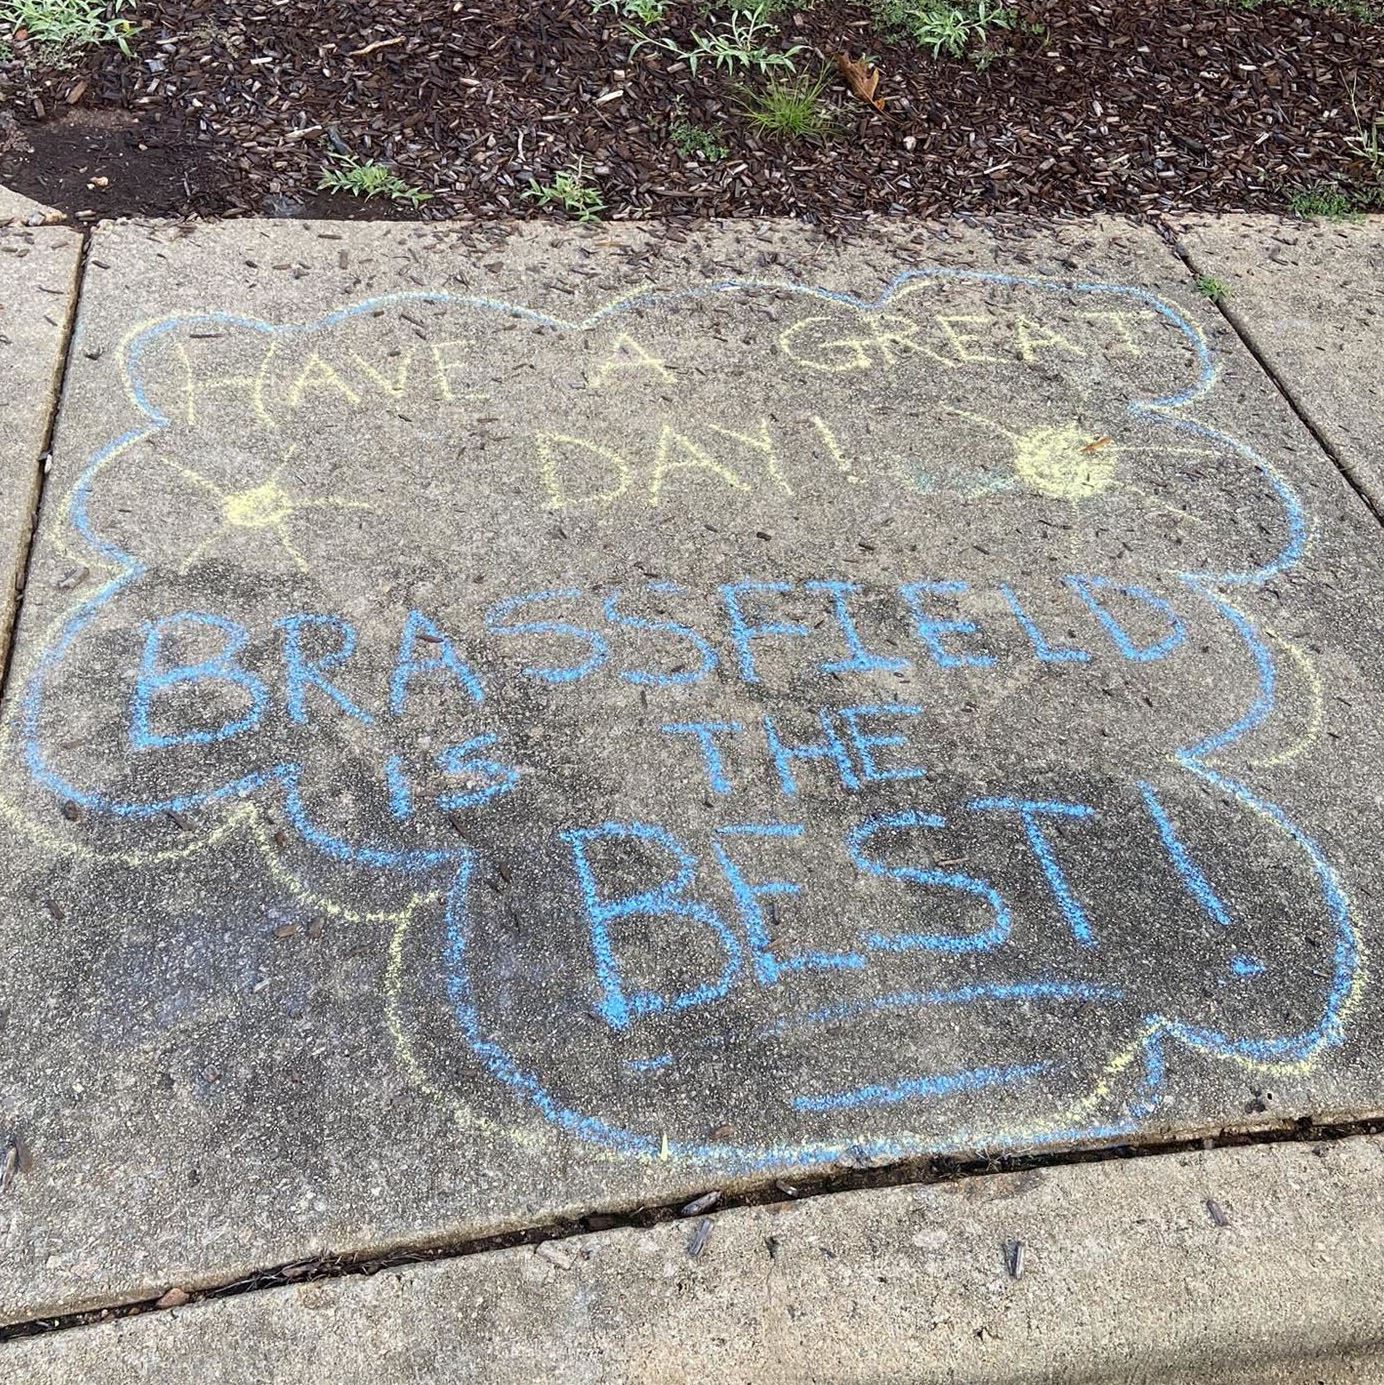 HAVE A GREAT
DAY!
BRASSFIELD
IS THE
BEST!